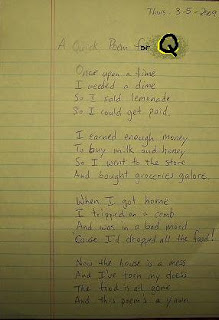 Thurs. 3-5-2009
A Quick Poem for Q
Once upon a time
I needed a dime
So I sold lemonade
So I could get paid.
I earned enough money
To buy milk and honey
So I went to the store
And bought groceries galore.
When I got home
I tripped on a comb
And was in a bad mood
'Cause I'd dropped all the food!
Now the house is a mess
And I've torn my dress
The food is all gone
And this poem's a yawn.